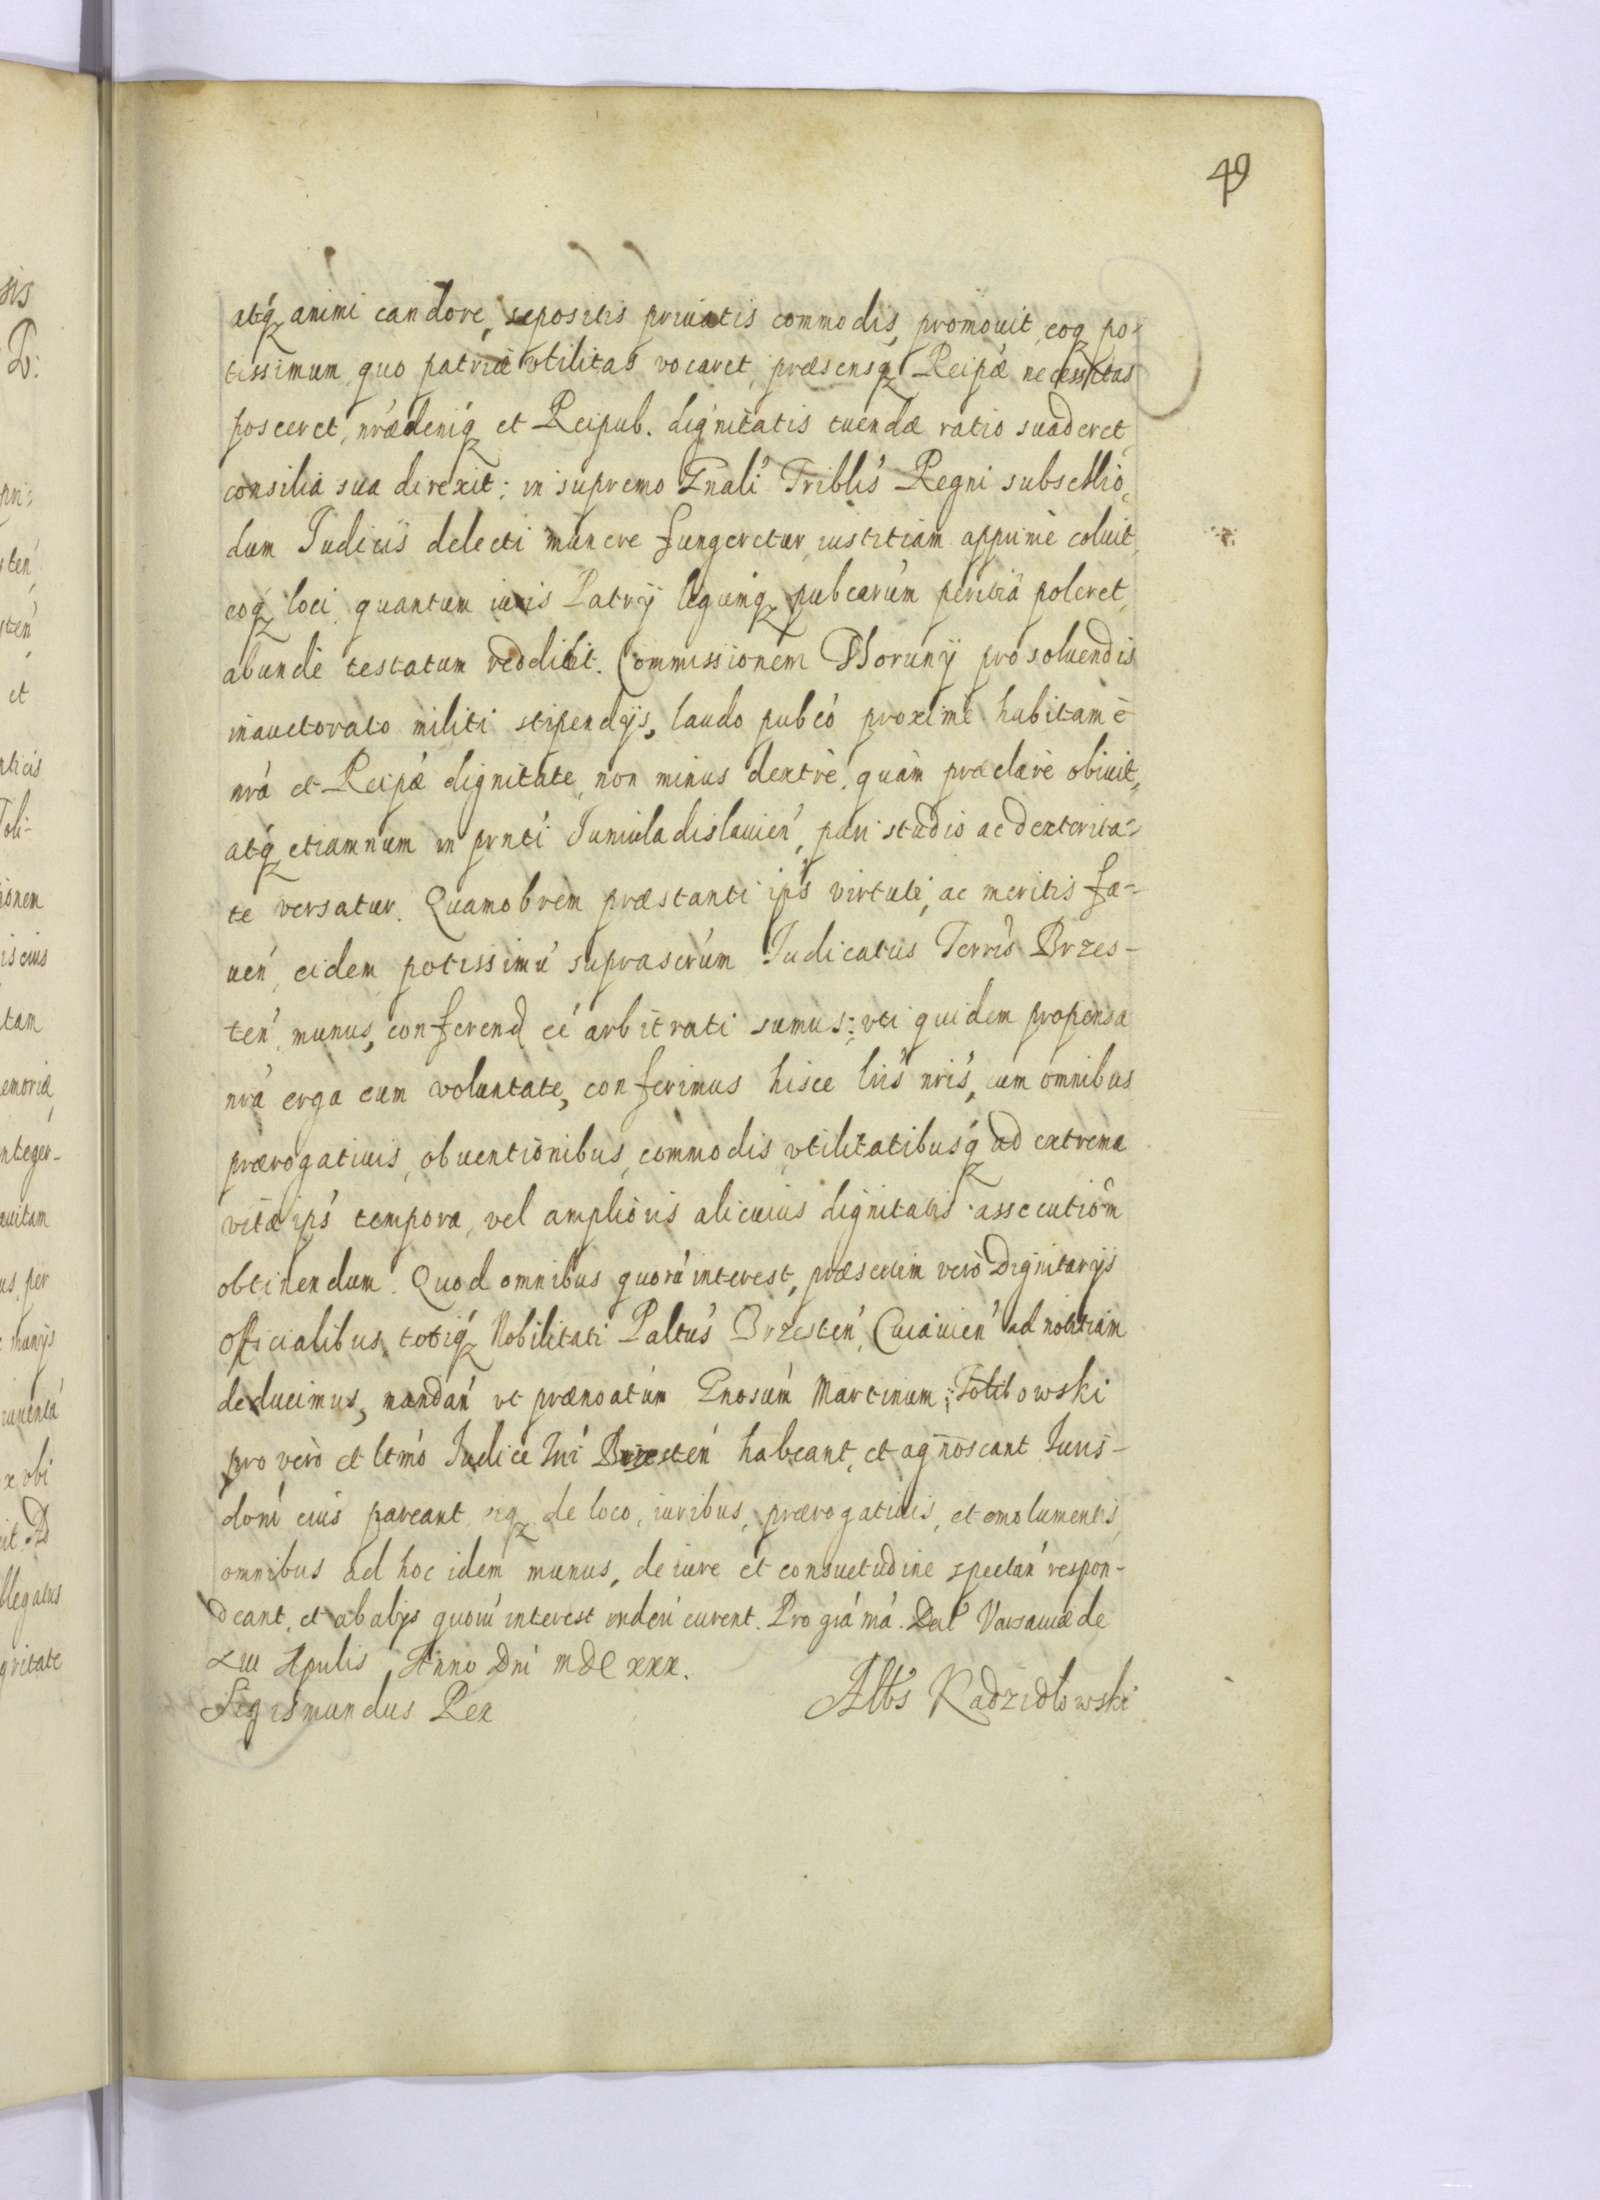 49
atq́ animi candore, sepositis priuatis commodis, promouit, eoq po-
tissimum quo patriæ vtilitas vocaret, præsensq Reipæ necessitas
posceret, nrǽ deniq́ et Reipub. dignitatis tuendæ ratio suaderet
consilia sua direxit: in supremo Gnali Triblis Regni subsellio,
dum Iudicis delecti munere fungeretur, iustitiam apprimè coluit
eoq́ loci, quantum iuris Patrij legumq pubcarúm peritiâ poleret,
abundè testatum reddidit. Commissionem Thorunij pro soluendis
inauctorato militi stipendijs, laudo pubcó proximè habitam è
nrá et Reipæ dignitate, non minus dextrè, quàm præclarè obiuit,
atq́ etiamnum in prnti Iuniuladislauień, pari studio ac dexterita-
te versatur. Quamobrem præstanti ips virtuti, ac meritis fa-
ueń, eidem potissimú suprascrúm Iudicatus Terris Brzes-
teń, munus, conferend eé arbitrati sumus: vti quidem propensa
nrá erga eum voluntate, conferimus hisce lris nris, cum omnibus
prærogatiuis, obuentionibus, commodis, vtilitatibusq́ ad extrema
vitæ ips tempora, vel amplioris alicuius dignitatis assecutióm
obtinendum. Quod omnibus quorú interest, præsertim verò Dignitarijs
Officialibus, totiq́ Nobilitati Paltus Brzesteń, Cuiauień ad notitiam
deducimus, mandań vt prænoatúm Gnosúm Martinum Tolibowski
pro verò et ltmó Iudice Tnri Brzesteń habeant, et agnoscant Iuris-
doni eius pareant eiq de loco, iuribus, prærogatiuis, et emolumentis
omnibus ad hoc idem munus, de iure et consuetudine spectań respon-
deant, et ab alijs quorú interest rnderi curent. Pro grá má. Dat Varsauiæ de
XIII Aprilis, Anno Dni MDCXXX.
Sigismundus Rex Albs Radzidlowski